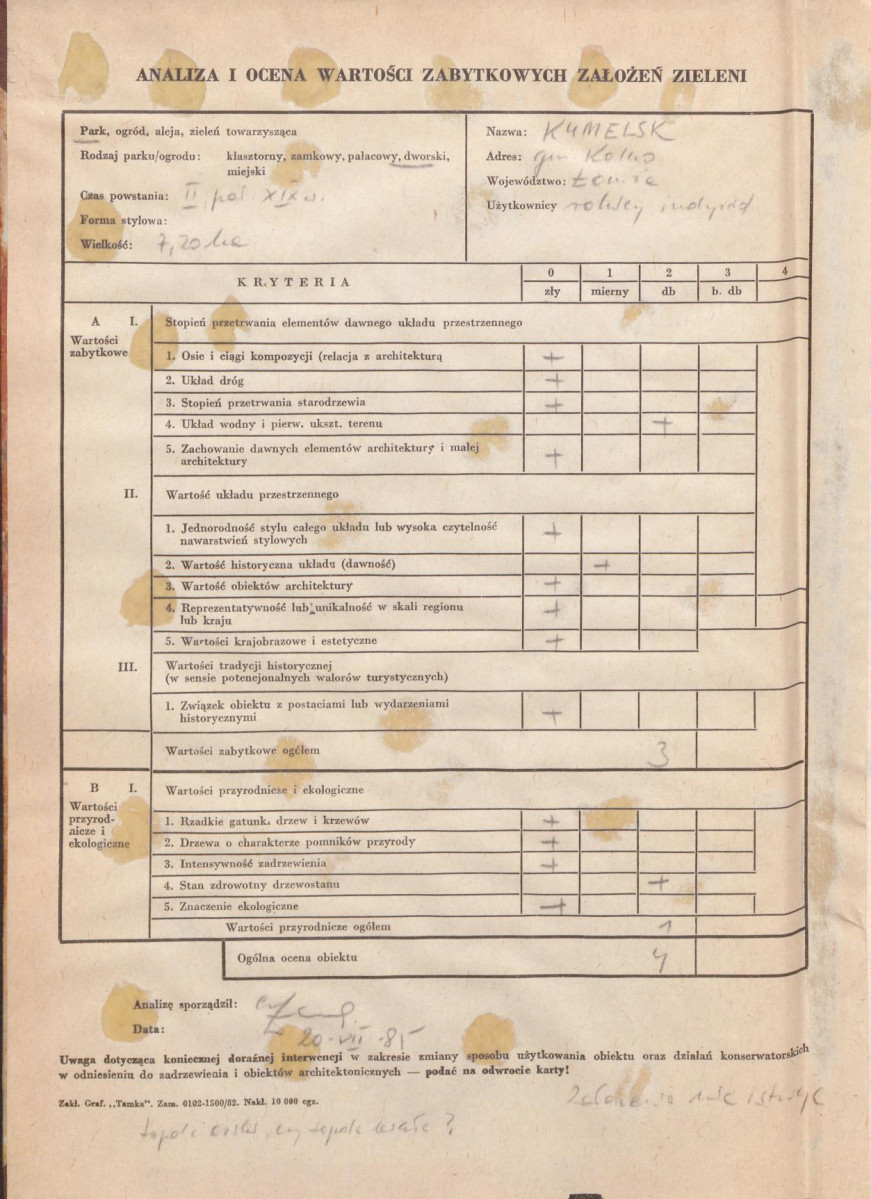 ANALIZA I OCENA WARTOŚCI ZABYTKOWYCH ZAŁOŻEŃ ZIELENI
Park, ogród, aleja, zieleń towarzysząca
Rodzaj parku/ogrodu: klasztorny, zamkowy, pałacowy, dworski,
miejski
Czas powstania: II poł. XIX w.
Forma stylowa:
Wielkość: 7,20 ha
Nazwa: KUMELSK
Adres: gm. Kolno
Województwo: Łomża
Użytkownicy rolnicy indywid
KRYTERIA
0 1 2 3 4
zły mierny db b. db
A I. Stopień przetrwania elementów dawnego układu przestrzennego
Wartości
zabytkowe
1. Osie i ciągi kompozycji (relacja z architekturą +
2. Układ dróg +
3. Stopień przetrwania starodrzewia +
4. Układ wodny i pierw. ukszt. terenu +
5. Zachowanie dawnych elementów architektury i małej
architektury +
II. Wartość układu przestrzennego
1. Jednorodność stylu całego układu lub wysoka czytelność
nawarstwień stylowych +
2. Wartość historyczna układu (dawność) +
3. Wartość obiektów architektury +
4. Reprezentatywność lub unikalność w skali regionu
lub kraju +
5. Wartości krajobrazowe i estetyczne +
III. Wartości tradycji historycznej
(w sensie potencjonalnych walorów turystycznych)
1. Związek obiektu z postaciami lub wydarzeniami
historycznymi +
Wartości zabytkowe ogółem 3
B I. Wartości przyrodnicze i ekologiczne
Wartości
przyrod-
nicze i
ekologiczne
1. Rzadkie gatunk. drzew i krzewów +
2. Drzewa o charakterze pomników przyrody +
3. Intensywność zadrzewienia +
4. Stan zdrowotny drzewostanu +
5. Znaczenie ekologiczne +
Wartości przyrodnicze ogółem 1
Ogólna ocena obiektu 4
Analizę sporządził:
Data: 20-VII-85
Uwaga dotycząca koniecznej doraźnej interwencji w zakresie zmiany sposobu użytkowania obiektu oraz działań konserwatorskich
w odniesieniu do zadrzewienia i obiektów architektonicznych — podać na odwrocie karty!
Zakł. Graf. „Tamka". Zam. 0102-1500/82. Nakł. 10 000 egz.